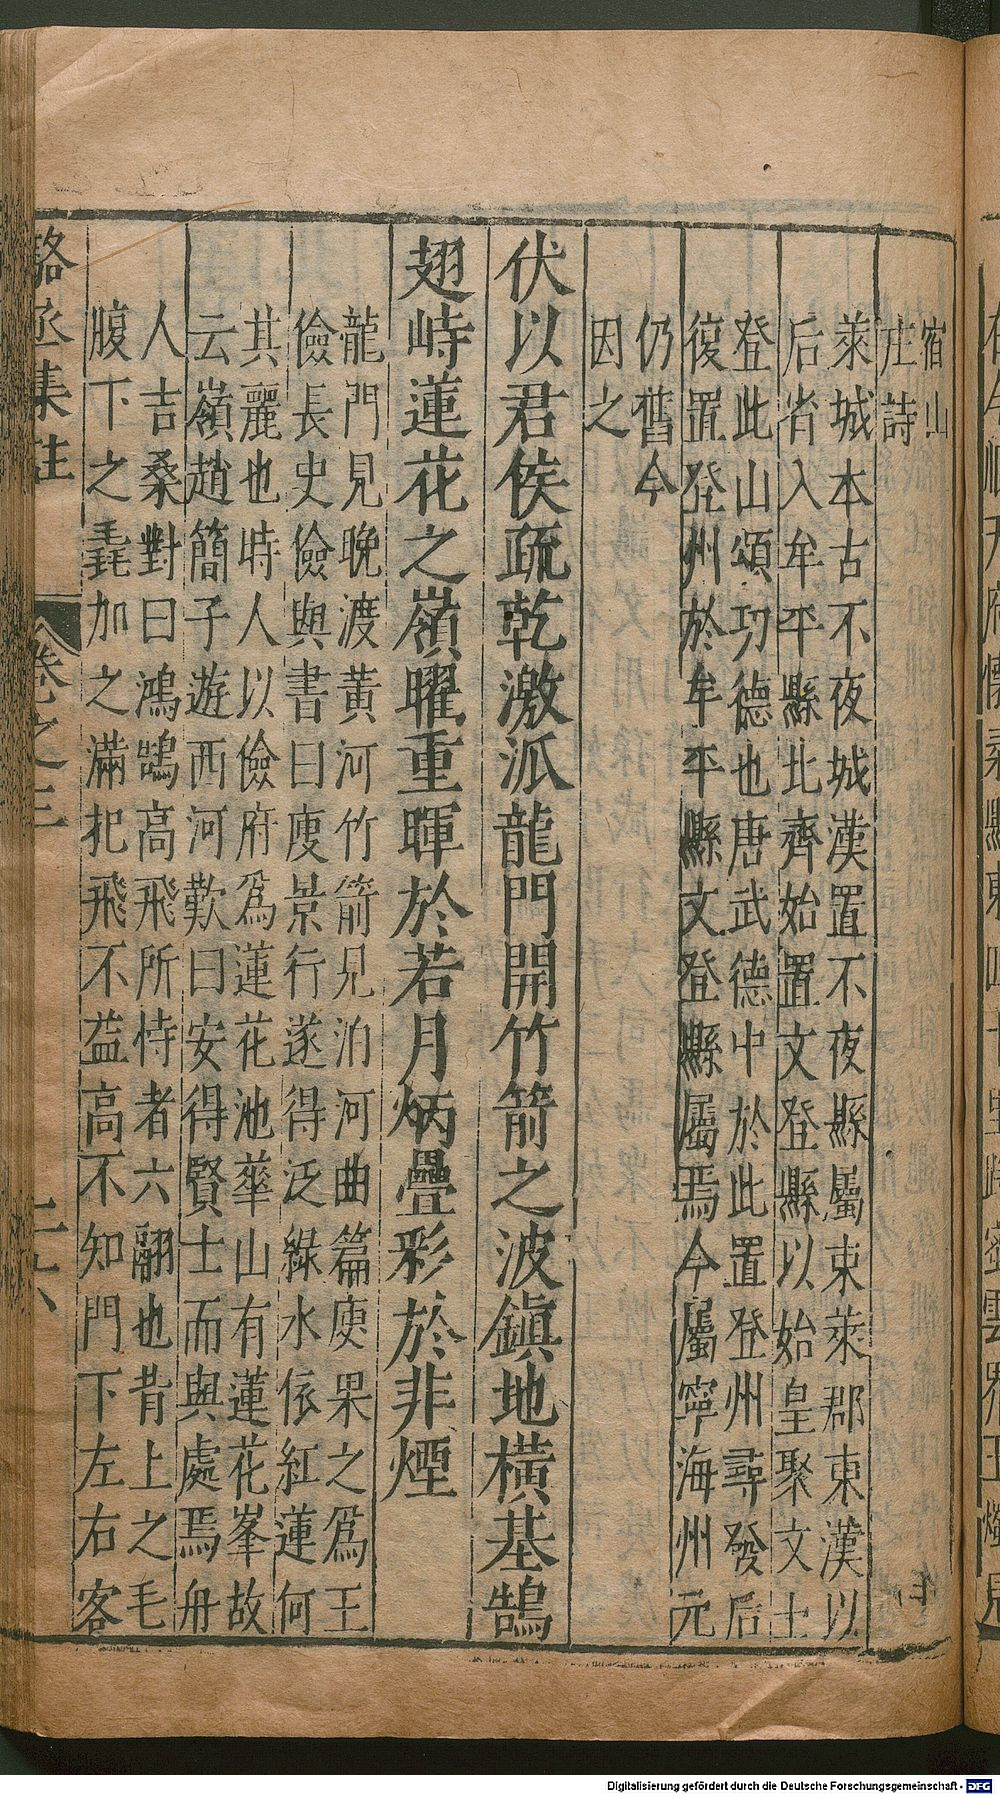 宿山
庄詩
萊城本古不夜城漢置不夜縣屬東萊郡東漢以
后省入牟平縣北齊始置文登縣以始皇聚文士
登此山頌功德也唐武德中於此置登州尋發后
復置登州於牟平縣文登縣屬焉今屬寧海州元
仍舊今
因之
伏以君侯疏乾激派龍門開竹箭之波鎮地橫基鵠
翅峙蓮花之嶺曜重暉於若月炳疊彩於非煙
龍門見晚渡黃河竹箭見泊河曲篇庾果之爲王
儉長史儉與書曰庾景行遂得泛綠水依紅蓮何
其麗也時人以儉府爲蓮花池華山有蓮花峯故
云嶺趙簡子遊西河歎曰安得賢士而與處焉舟
人吉桑對曰鴻鵠高飛所恃者六翮也昔上之毛
腹下之毳加之滿犯飛不益高不知門下左右客
駱丞集註 卷之三 二十八
Digitalisierung gefördert durch die Deutsche Forschungsgemeinschaft - DFG